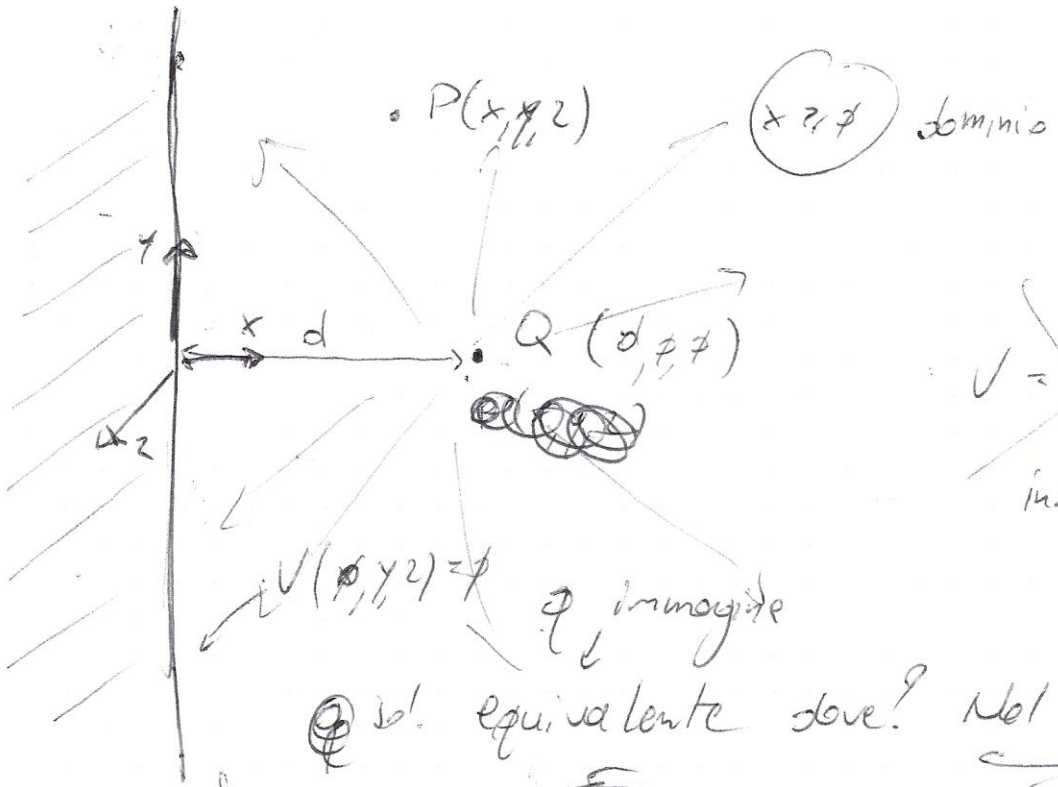 . P(x,y,z)
x ≥ ø dominio
y
x d
Q (d,ø,ø)
z
V =
in
V(ø,y,z)=ø
q immagine
sol. equivalente dove? Nel